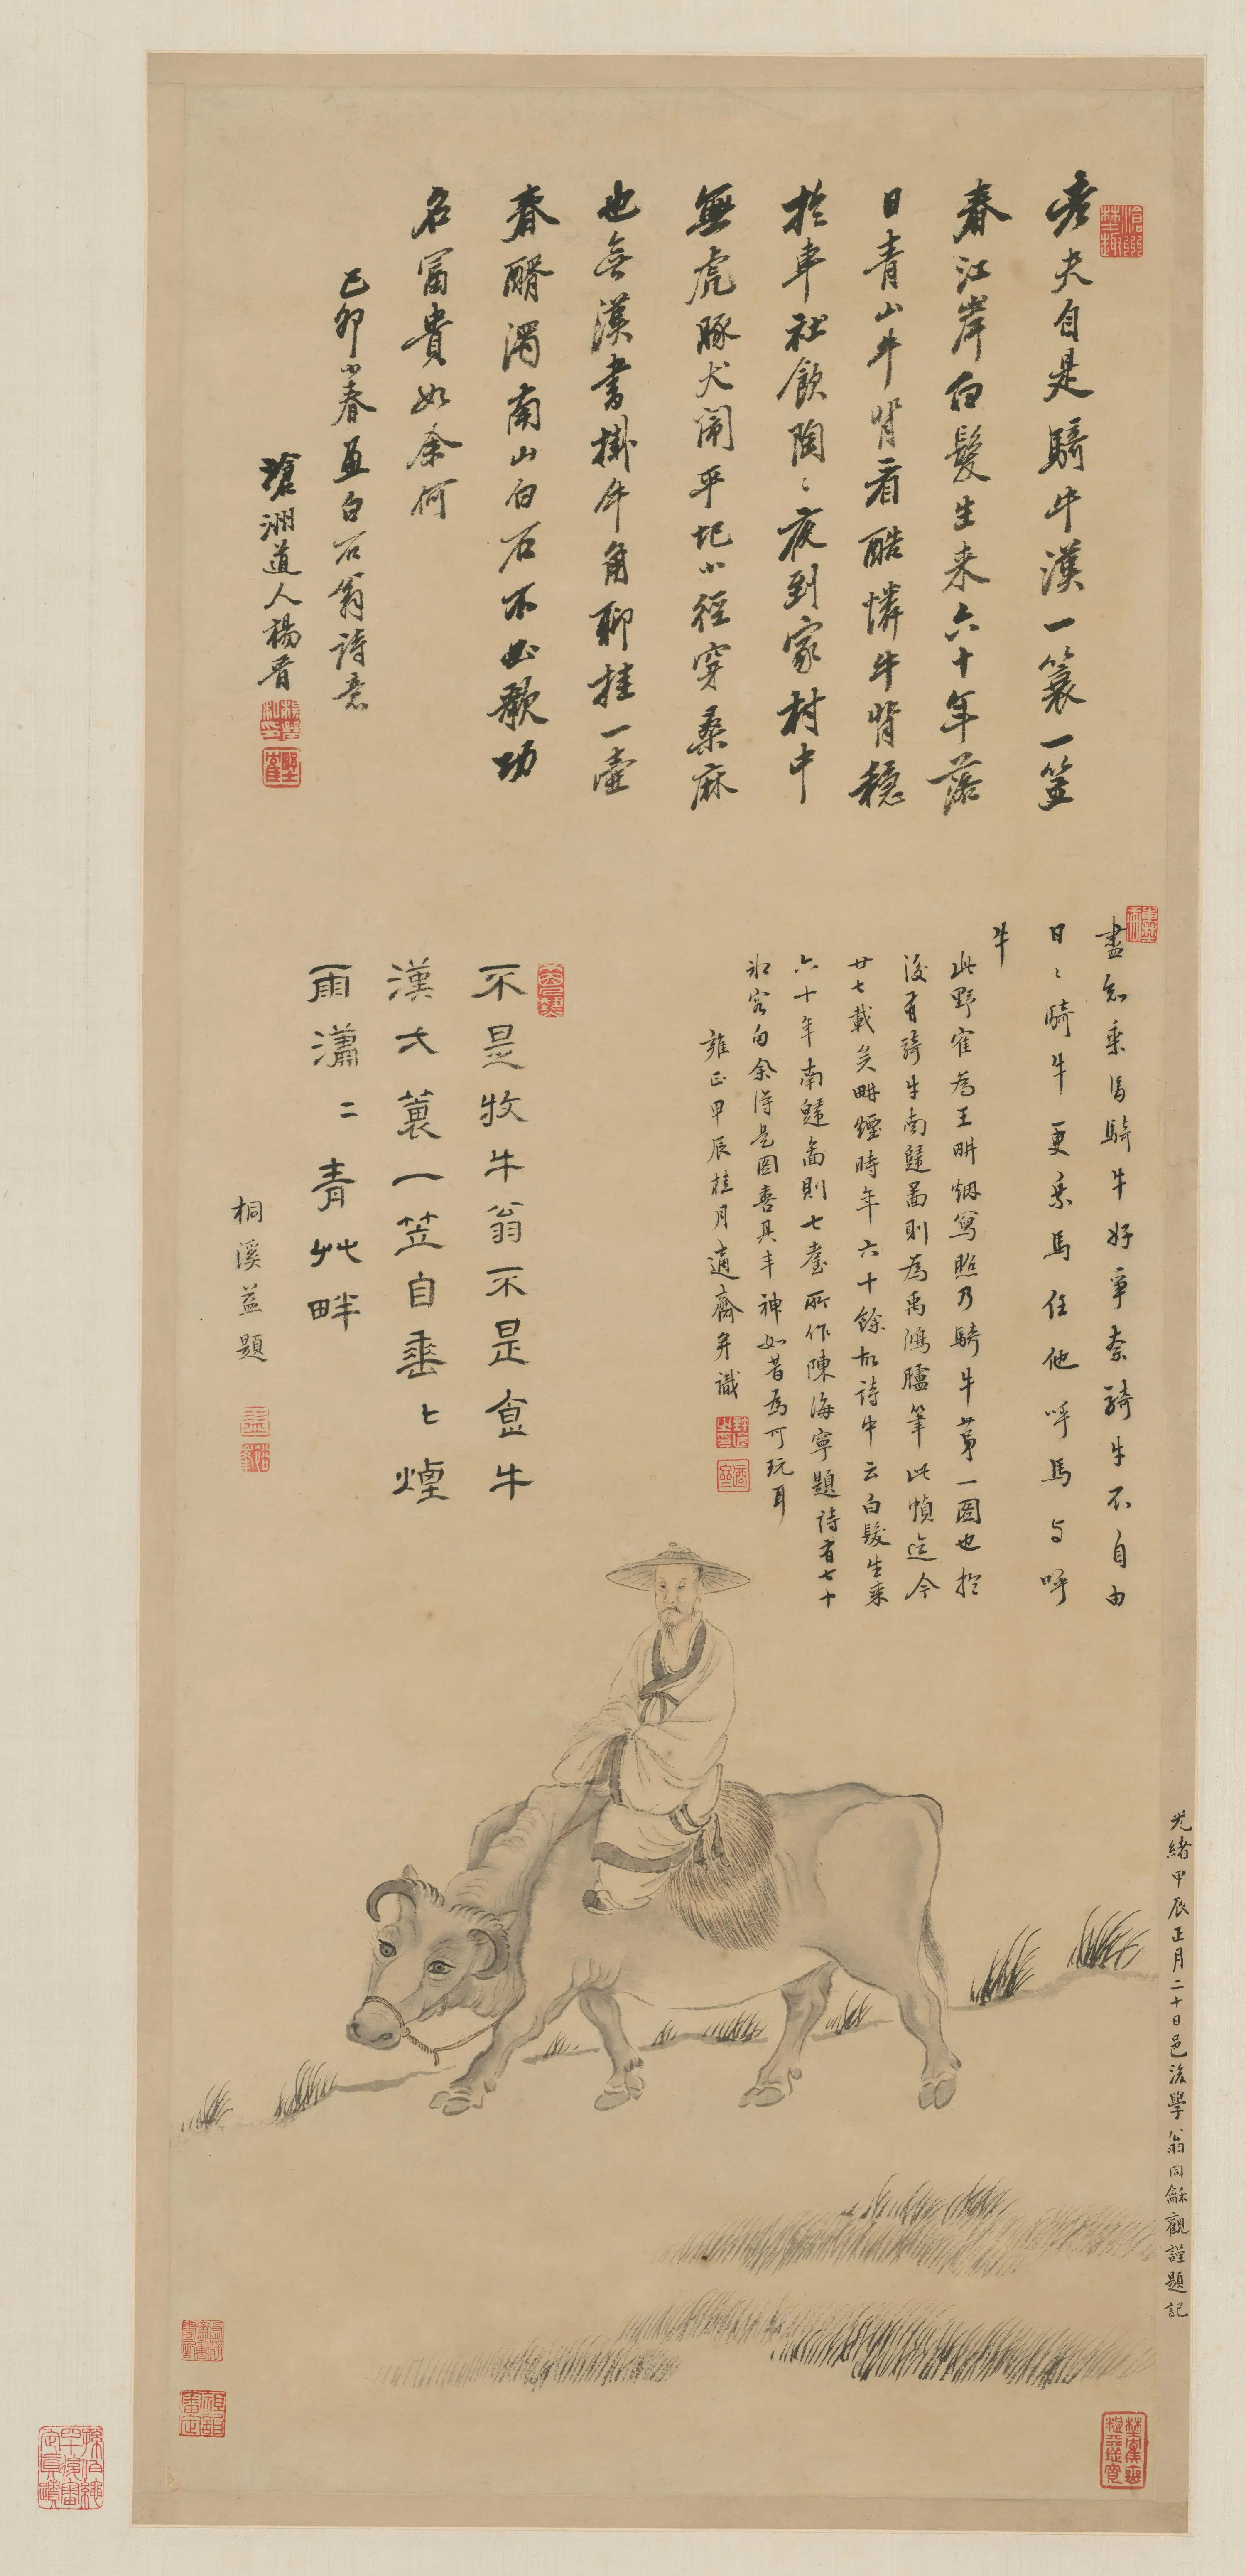 老夫自是騎牛漢一蓑一笠
春江岸白髮生来六十年落
日青山牛背看酷憐牛背穩
於車社飲陶〻夜到家村中
無虎豚犬闹平圯小徑穿桑麻
也無漢書掛牛角聊挂一壺
春醑濁南山白石不必歌功
名富貴如余何
己卯小春畫白石翁詩意
滄洲道人楊晉
盡怱乘馬騎牛好爭奈騎牛不自由
日〻騎牛更乘馬任他呼馬与呼
牛
此野隺為王畊烟寫照乃騎牛苐一圖也於
後有騎牛南歸啚則為禹鴻臚筆此幀迄今
廿七載矣畊煙時年六十餘故詩中云白髮生来
六十年南歸啚則七耋所作陳海寧題詩有七十
客向余得是圖喜其丰神如昔為可玩耳
雍正甲辰桂月適齋并識
不是牧牛翁不是食牛
漢大蓑一笠自垂〻煙
雨瀟〻青艸畔
桐溪益題
光緒甲辰正月二十日邑後學翁同龢觀謹題記